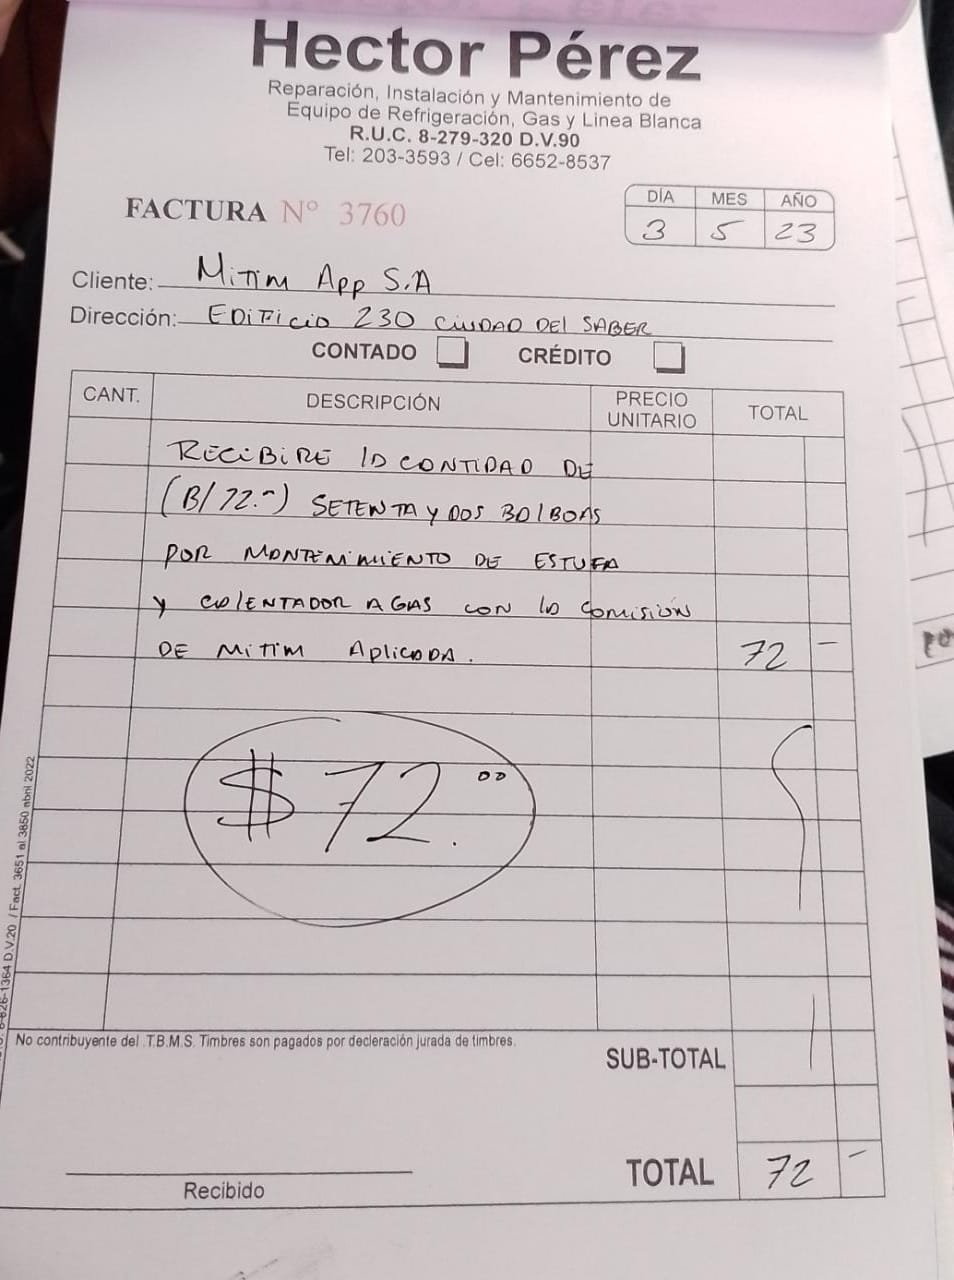 Hector Pérez
Reparación, Instalación y Mantenimiento de
Equipo de Refrigeración, Gas y Linea Blanca
R.U.C. 8-279-320 D.V.90
Tel: 203-3593 / Cel: 6652-8537
FACTURA N° 3760
DÍA MES AÑO
3 5 23
Cliente: MiTim App S.A
Dirección: EDiFicio 230 CiUDAD DEl SABER
CONTADO CRÉDITO
CANT. DESCRIPCIÓN PRECIO UNITARIO TOTAL
RECiBiRE lD CONTiDAD DE
(B/ 72.-) SETENTA y DOS BOlBOAS
POR MONTENiMiENTO DE ESTUFA
y COlENTADOR A GAS CON lD COmiSiÓN
DE MiTiM AplicaDA. 72 -
$ 72.00
No contribuyente del .T.B.M.S. Timbres son pagados por decleración jurada de timbres.
SUB-TOTAL
TOTAL 72 -
Recibido
8-826-1364 D.V.20 / Fact. 3651 al 3850 abril 2022